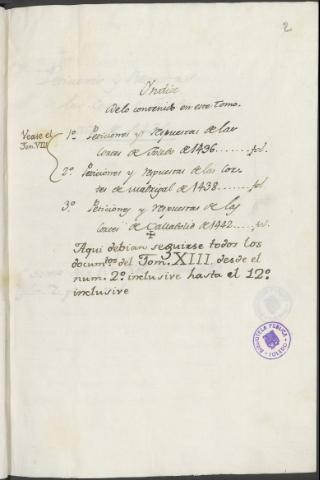 2
Yndice
De lo contenido en este Tomo.
Vease el
Tom. VIII
1º Peticiones y respuestas de las
Cortes de Toledo de 1436.......fol.
2º Peticiones y respuestas de las Cor-
tes de Madrigal de 1438.......fol
3º Peticiones y respuestas de las
Cortes de Valladolid de 1442....fol.
Aqui debian seguirse todos los
documtos del Tom. XIII. desde el
num. 2º inclusive hasta el 12º
inclusive
BIBLIOTECA PUBLICA
TOLEDO